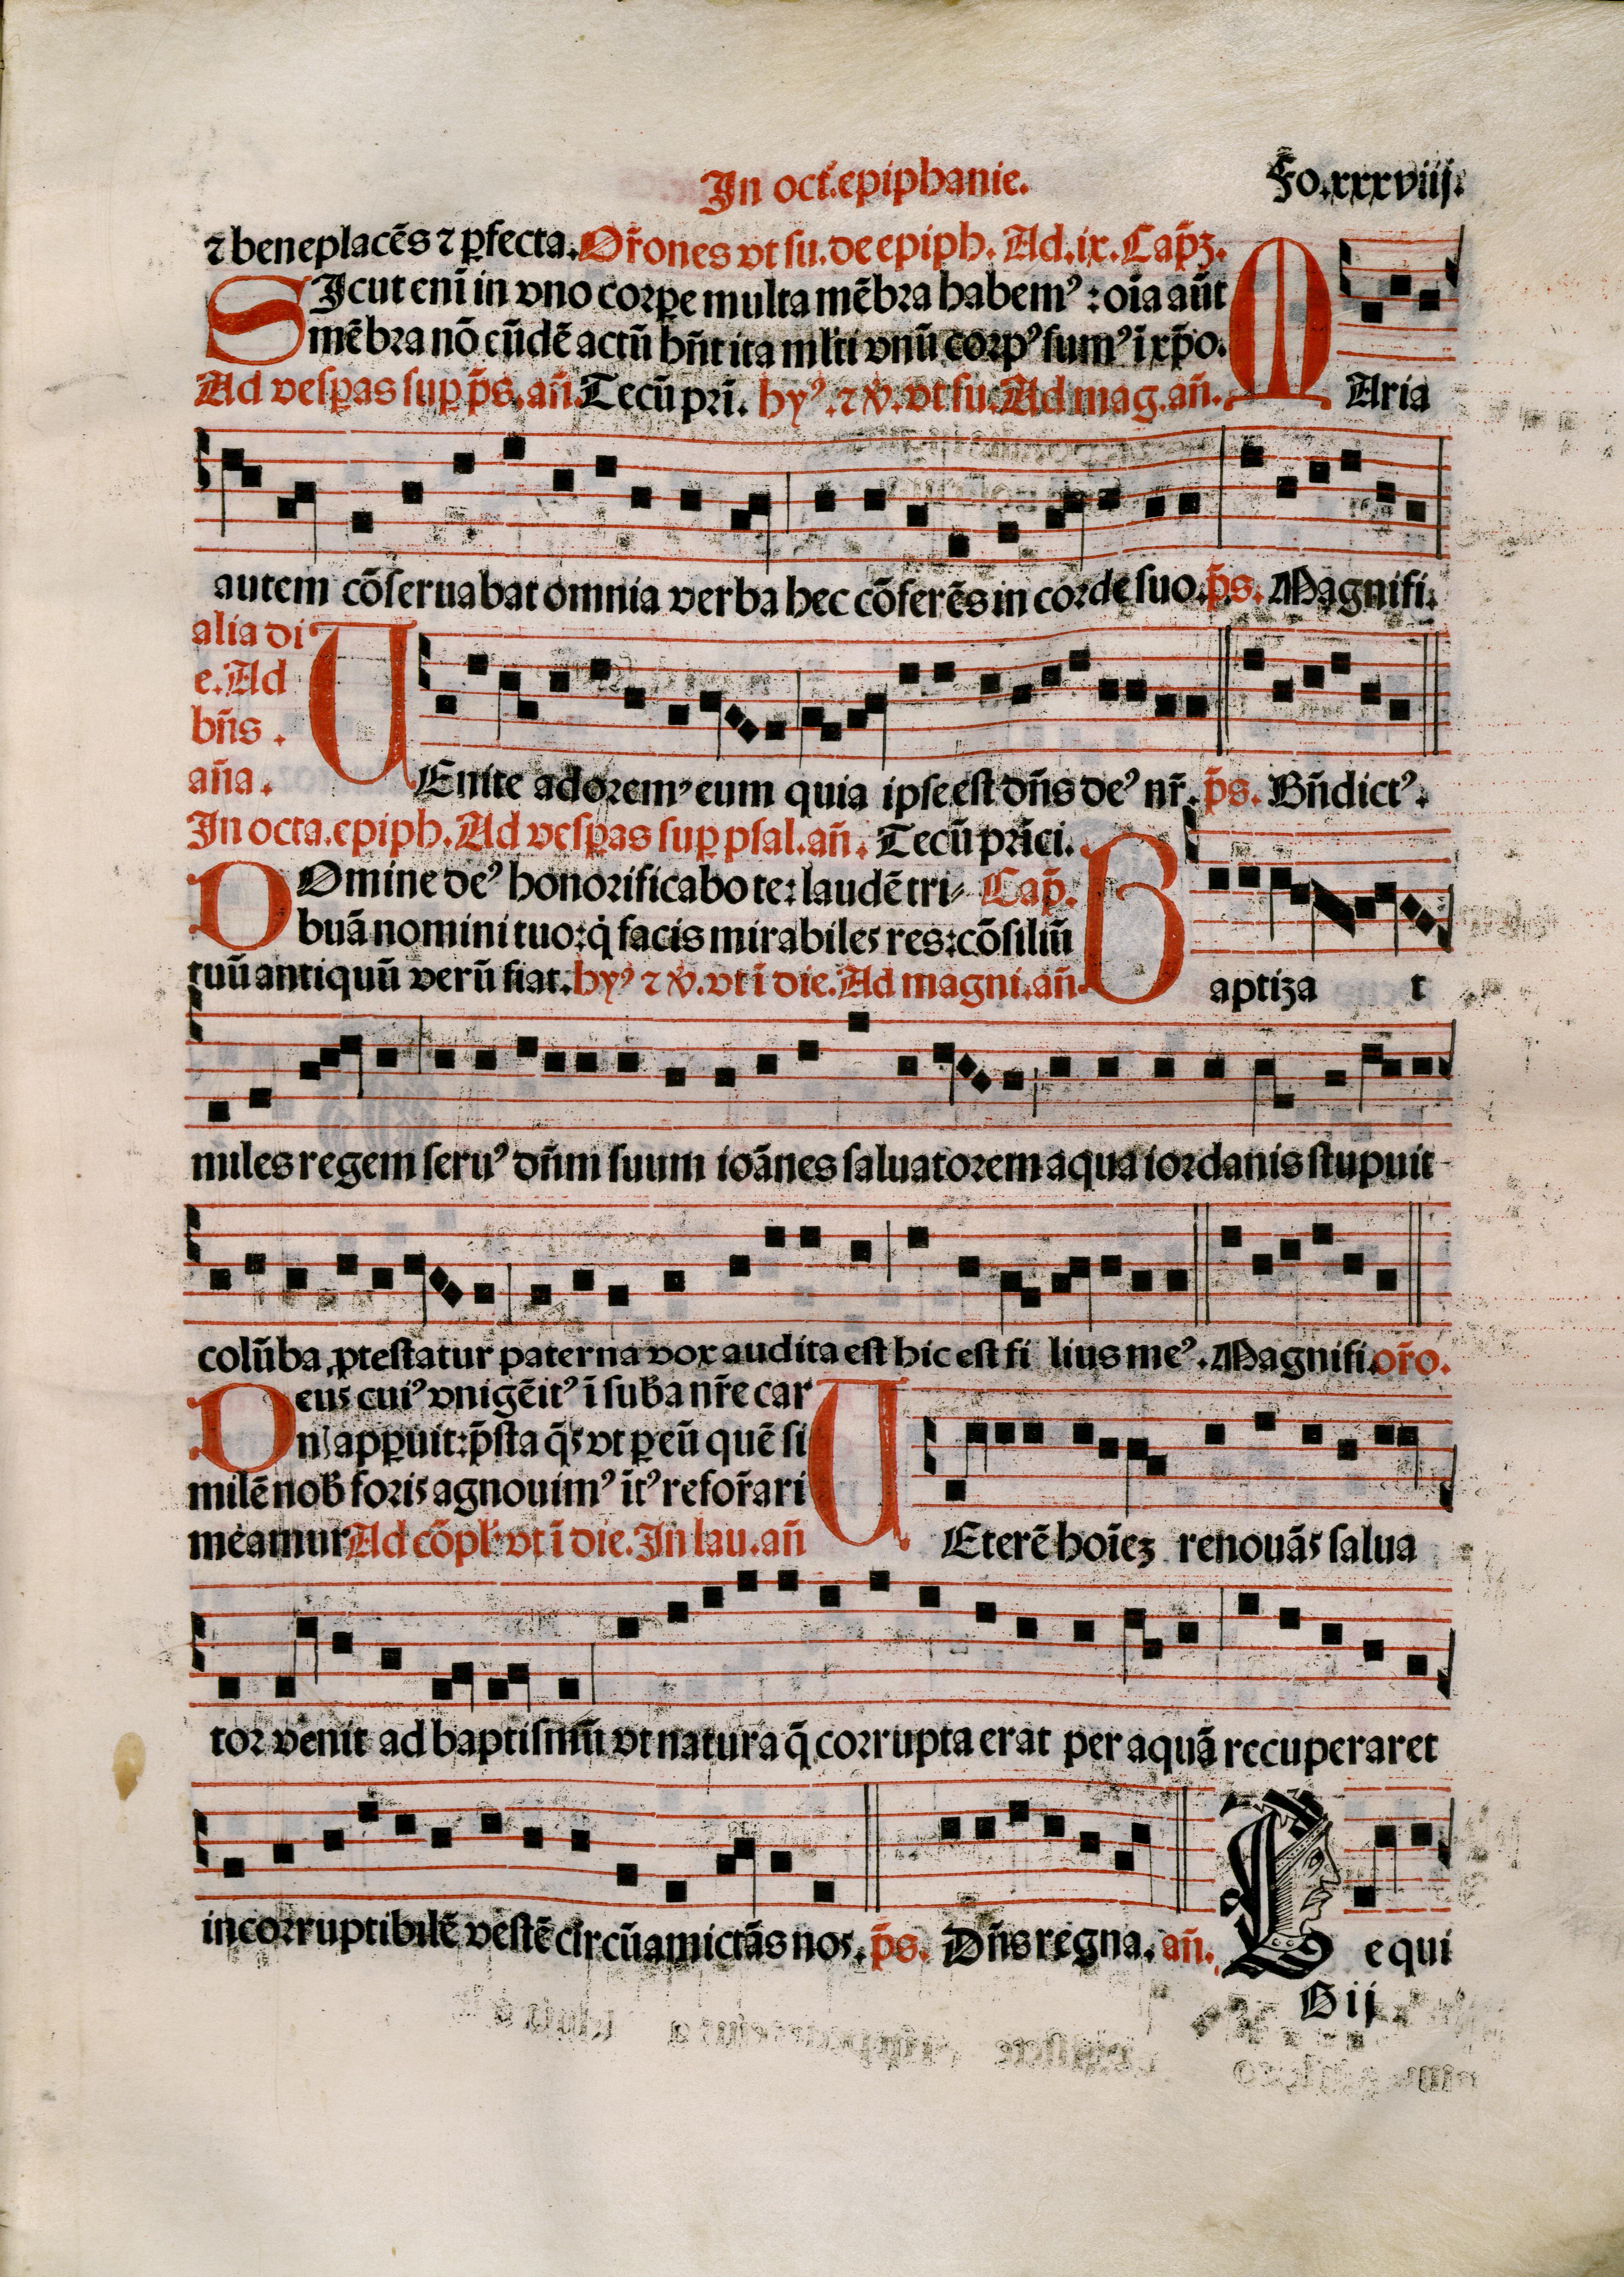 In oct̃.epiphanie.
Fo.xxxviij.
⁊ beneplacẽs ⁊ ꝑfecta. Or̃ones vt su. de epiph. Ad.ix. Cap̃ꝫ.
SIcut enĩ in vno corꝑe multa mẽbra habemꝰ : oĩa aũt
mẽbra nõ eũdẽ actũ hñt ita ml̃ti vnũ corpꝰ sumꝰ ĩ xp̃o.
Ad vesꝑas suꝑ p̃s. añ. Tecũ pri. hyꝰ. ⁊ ꝟ. vt su. Ad mag. añ. MAria
autem cõseruabat omnia verba hec cõferẽs in corde suo. p̃s. Magnifi.
alia di
e. Ad
bñs.
aña. UEnite adoremꝰ eum quia ipse est dñs deꝰ nr̃. p̃s. Bñdictꝰ.
In octa. epiph. Ad vesꝑas suꝑ psal. añ. Tecũ prĩci.
DOmine deꝰ honorificabo te: laudẽ tri- Cap̃.
buã nomini tuo: q̇ facis mirabiles res: cõsiliũ
tuũ antiquũ verũ fiat. hyꝰ ⁊ ꝟ. vt ĩ die. Ad magni. añ Baptiza t
miles regem seruꝰ dñm suum ioãnes saluatorem aqua iordanis stupuit
colũba ꝓtestatur paterna vox audita est hic est fi lius meꝰ. Magnifi. or̃o.
Deus cuiꝰ vnigẽitꝰ ĩ suba nr̃e car
nis apꝑuit: p̃sta q̃s vt ꝑ eũ quẽ si
milẽ nob̃ foris agnouimꝰ ĩtꝰ refor̃ari
meamur Ad cõpl. vt ĩ die. In lau. añ UEterẽ hoĩeꝫ renouãs salua
tor venit ad baptismũ vt natura q̃ corrupta erat per aquã recuperaret
incorruptibilẽ vestẽ circũamictãs nos. p̃s. Dñs regna. añ. Te qui
G ij